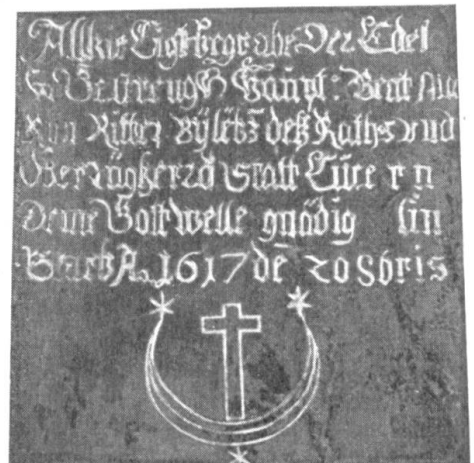 Allhie Ligt begrabe Der Edel
Gestreng H Haupt: Beat Am
Ryn Ritter wÿletz deß Raths und
Oberzügherr d Statt Lucern
Deme Gott welle gnädig sin
Starb A. 1617 dē 20 8bris